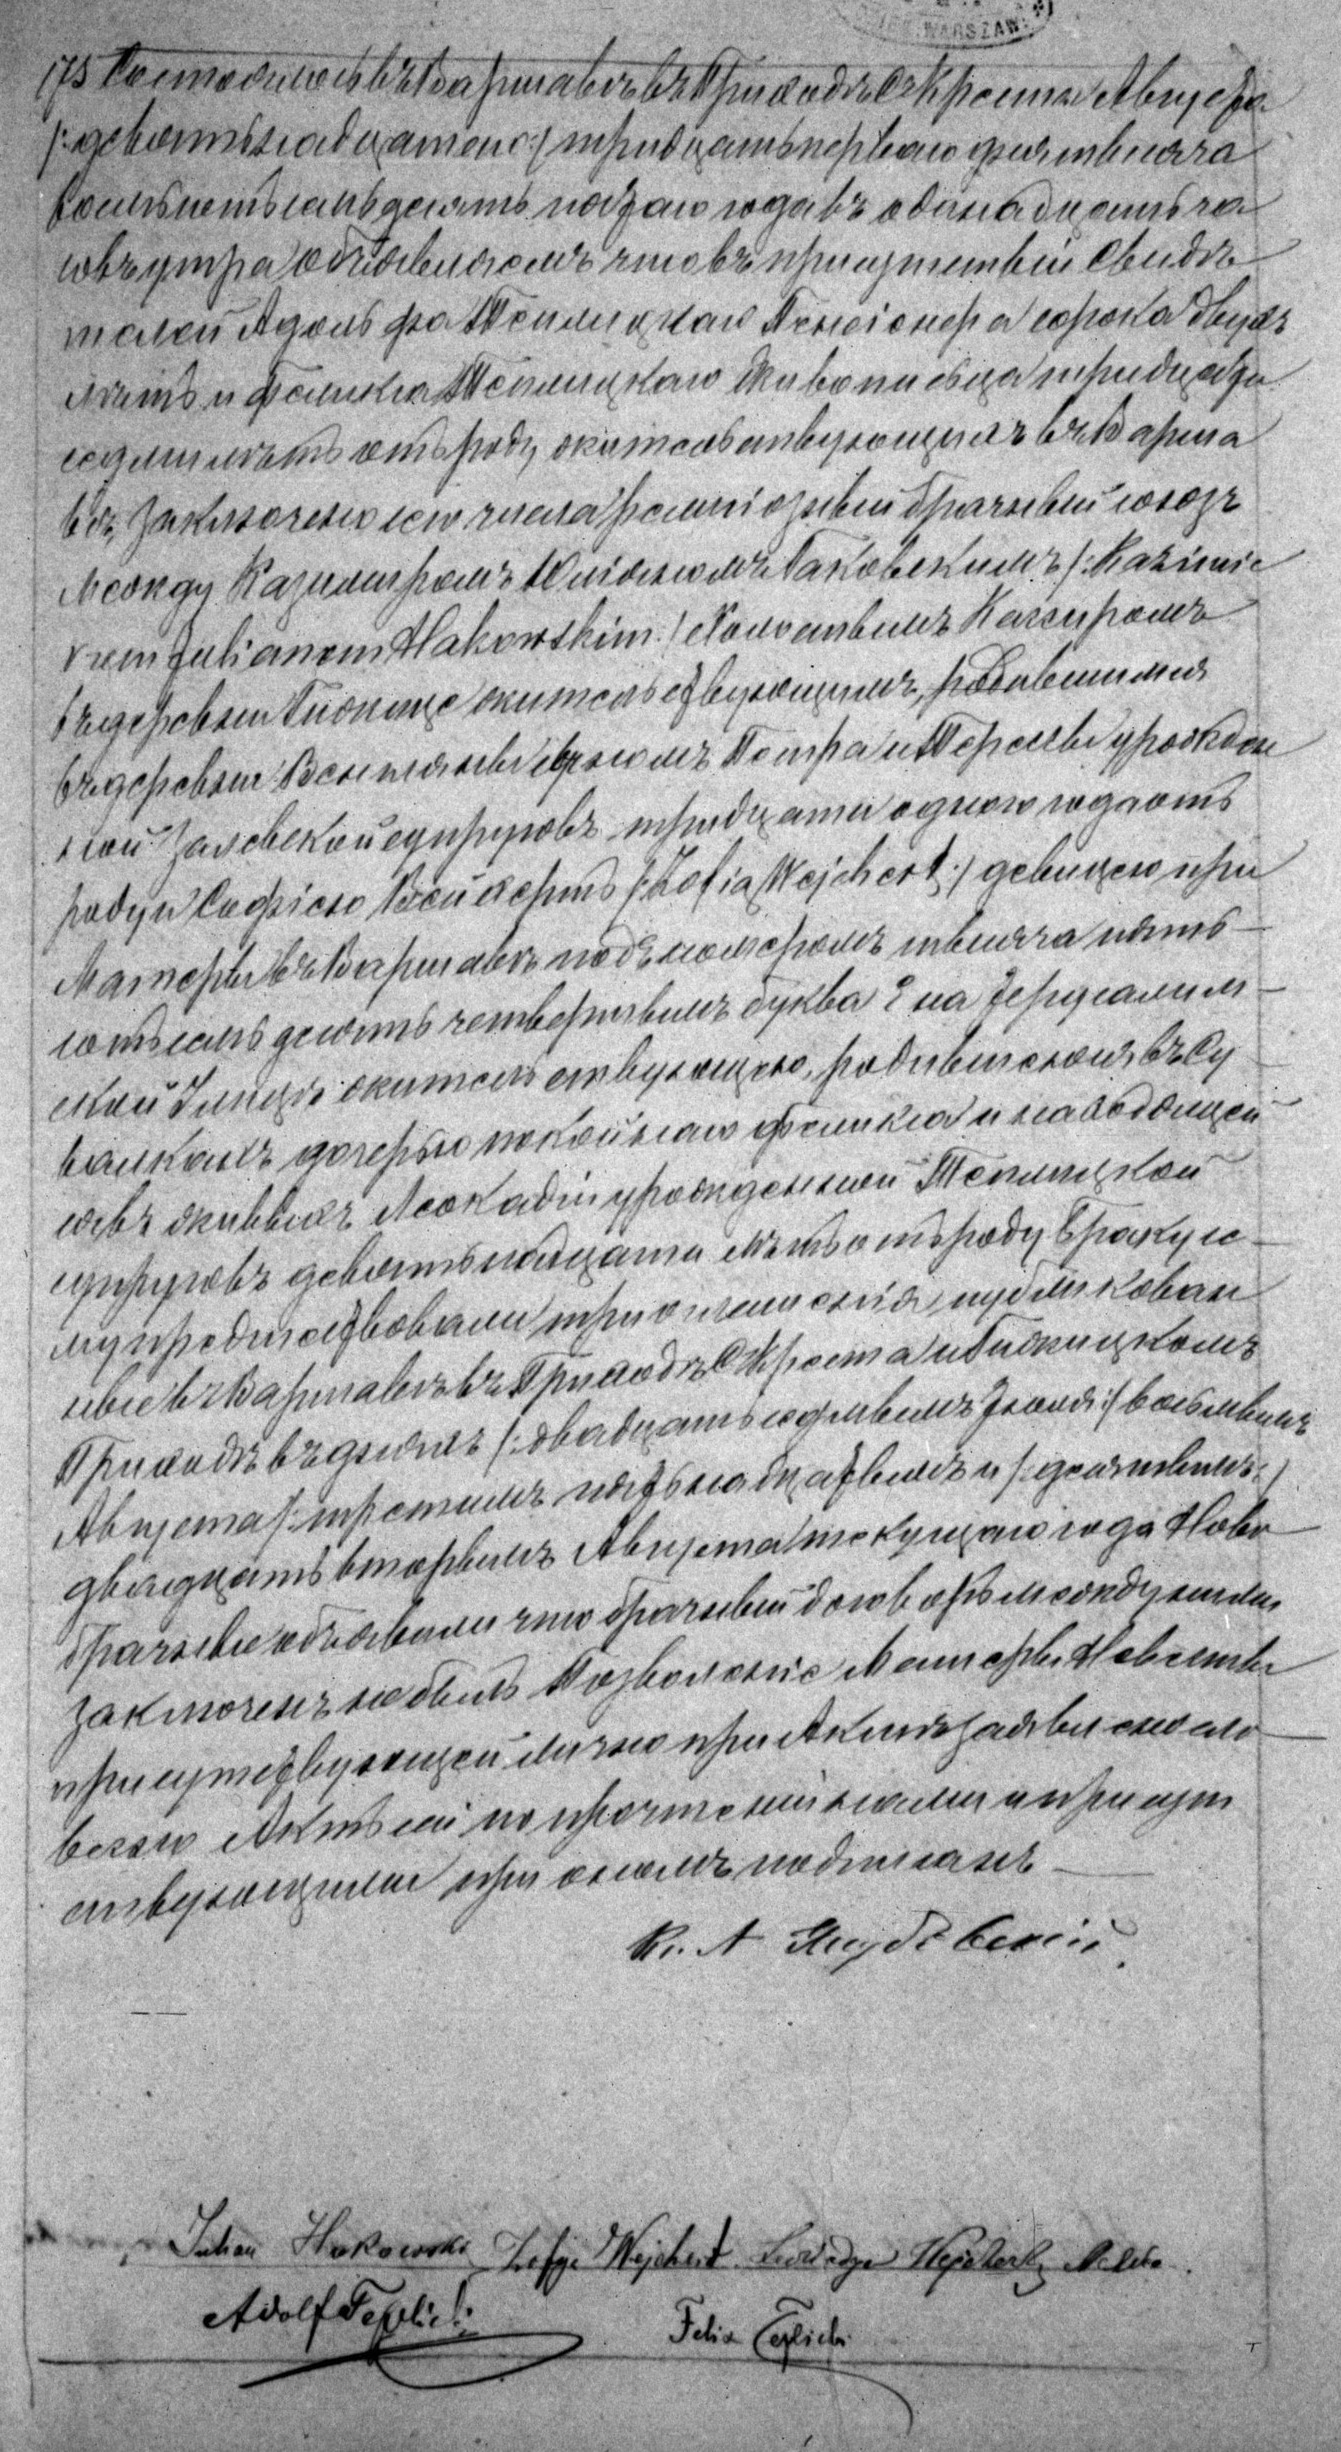 WARSZAW
173 Состоялось въ Варшавѣ въ Приходѣ С Креста Августа
/:девятнадцатаго:/ тридцать перваго дня тысяча
восемьсотъ семьдесятъ пятаго года въ одинадцать ча
совъ утра Объявляемъ что въ присутствіи Свидѣ
телей Адольфа Теплицкаго Пенсіонера сорока двухъ
лѣтъ и Феликса Теплицкаго Живописца тридцати
седми лѣтъ отъ роду жительствующихъ въ Варша
вѣ, заключено сего числа религіозный брачный союзъ
между Казимиромъ Юліаномъ Гаковскимъ /:Kazimie
rzem Julianem Hakowskim:/ Холостымъ Кассиромъ
въ деревни Гузкице жительствующимъ, родившимся
въ деревни сыномъ Петра и Терессы урожден
ной Залевской супруговъ тридцати одного года отъ
роду и Софіею Вейхертъ /:Zofia Wejchert:/ девицею при
Матери въ Варшавѣ подъ номеромъ тысяча пять
сотъ семьдесятъ четвертымъ буква на Іерусалим
ской Улицѣ жительствующею, родившеюся въ Су
валкахъ дочерью покойнаго Феликса и находящей
ся въ живыхъ Леокадіи урожденной Теплицкой
супруговъ девятнадцати лѣтъ отъ роду Браку се
му предшествовали три оглашенія публикован
ные въ Варшавѣ въ Приходѣ С Креста и
Приходѣ въ дняхъ /:двадцать седмымъ Іюля:/ восьмымъ
Августа /:третьимъ пятнадцатымъ и /:десятымъ:/
двадцать вторымъ Августа текущаго года Ново
брачные объявили что брачный договоръ между ними
заключенъ не былъ Позволеніе Матери Невесты
присутствующей лично при Актѣ заявлено сло
весно Актъ сей по прочтеніи нами и присут
ствующими при ономъ подписанъ
Кс. А
Julian Hakowski Zofja Wejchert Leokadya Wejchert
Adolf Teplicki
Felix Teplicki